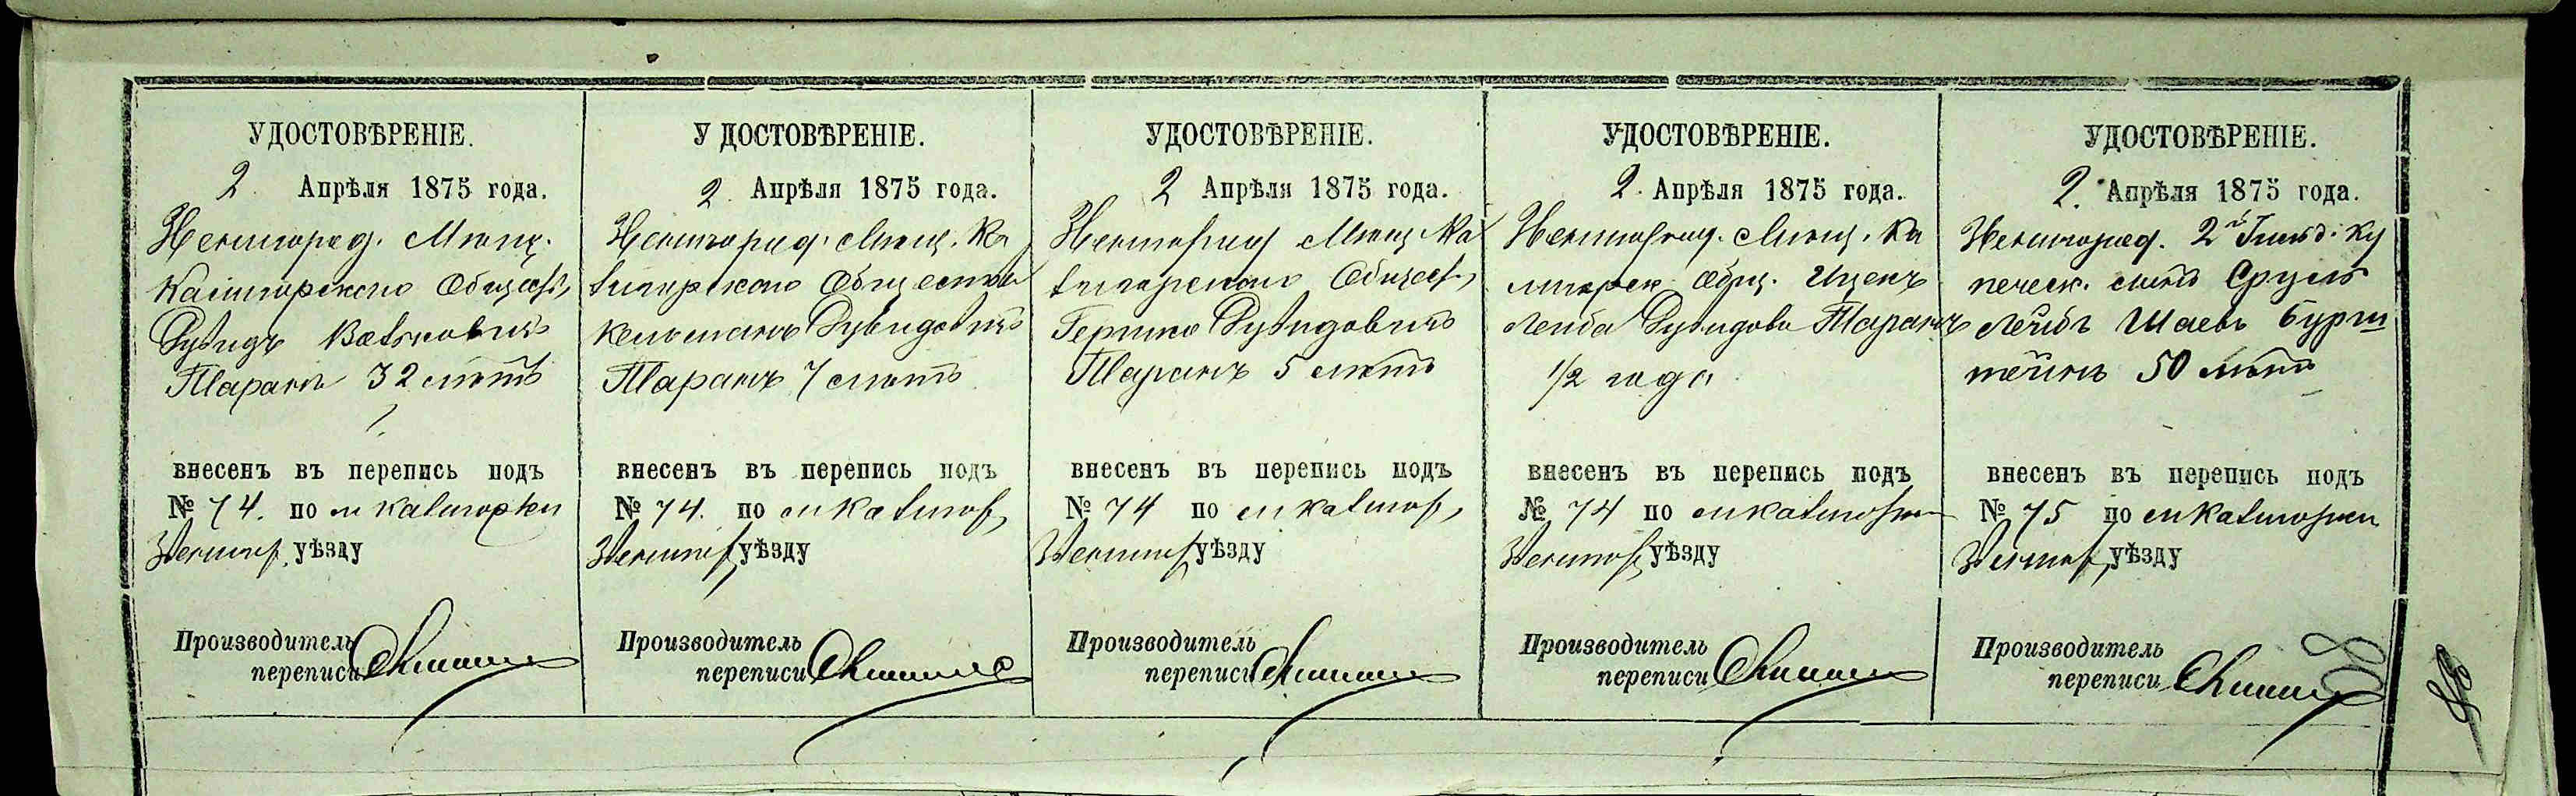 УДОСТОВѢРЕНІЕ.
2 Апрѣля 1875 года.
Звенигород. Мѣщ.
Общест,
Дувидъ
Таранъ 32 лѣтъ
внесенъ въ перепись подъ
№ 74. по м
Звениг. уѣзду
Производитель
переписи
УДОСТОВѢРЕНІЕ.
2. Апрѣля 1875 года.
Звенигород. Мѣщ. Ка
Общества
Кельманъ Дувидовичъ
Таранъ 7 лѣтъ
внесенъ въ перепись подъ
№ 74. по м
Звениг. уѣзду
Производитель
переписи
УДОСТОВѢРЕНІЕ.
2 Апрѣля 1875 года.
Звенигород Мѣщ Ка
Общест,
Гершко Дувидовичъ
Таранъ 5 лѣтъ
внесенъ въ перепись подъ
№ 74 по м
Звениг. уѣзду
Производитель
переписи
УДОСТОВѢРЕНІЕ.
2. Апрѣля 1875 года.
Звенигород. Мѣщ. Ка
Общ. Иценъ
Лейба Дувидовъ Таранъ
1/2 года
внесенъ въ перепись подъ
№ 74 по м
Звениг. уѣзду
Производитель
переписи
УДОСТОВѢРЕНІЕ.
2. Апрѣля 1875 года.
Звенигород. 2й Гильд. Ку
печеск. сынъ Сруль
Лейбъ Шаевъ Бурш
тейнъ 50 лѣтъ
внесенъ въ перепись подъ
№ 75 по м
Звениг. уѣзду
Производитель
переписи